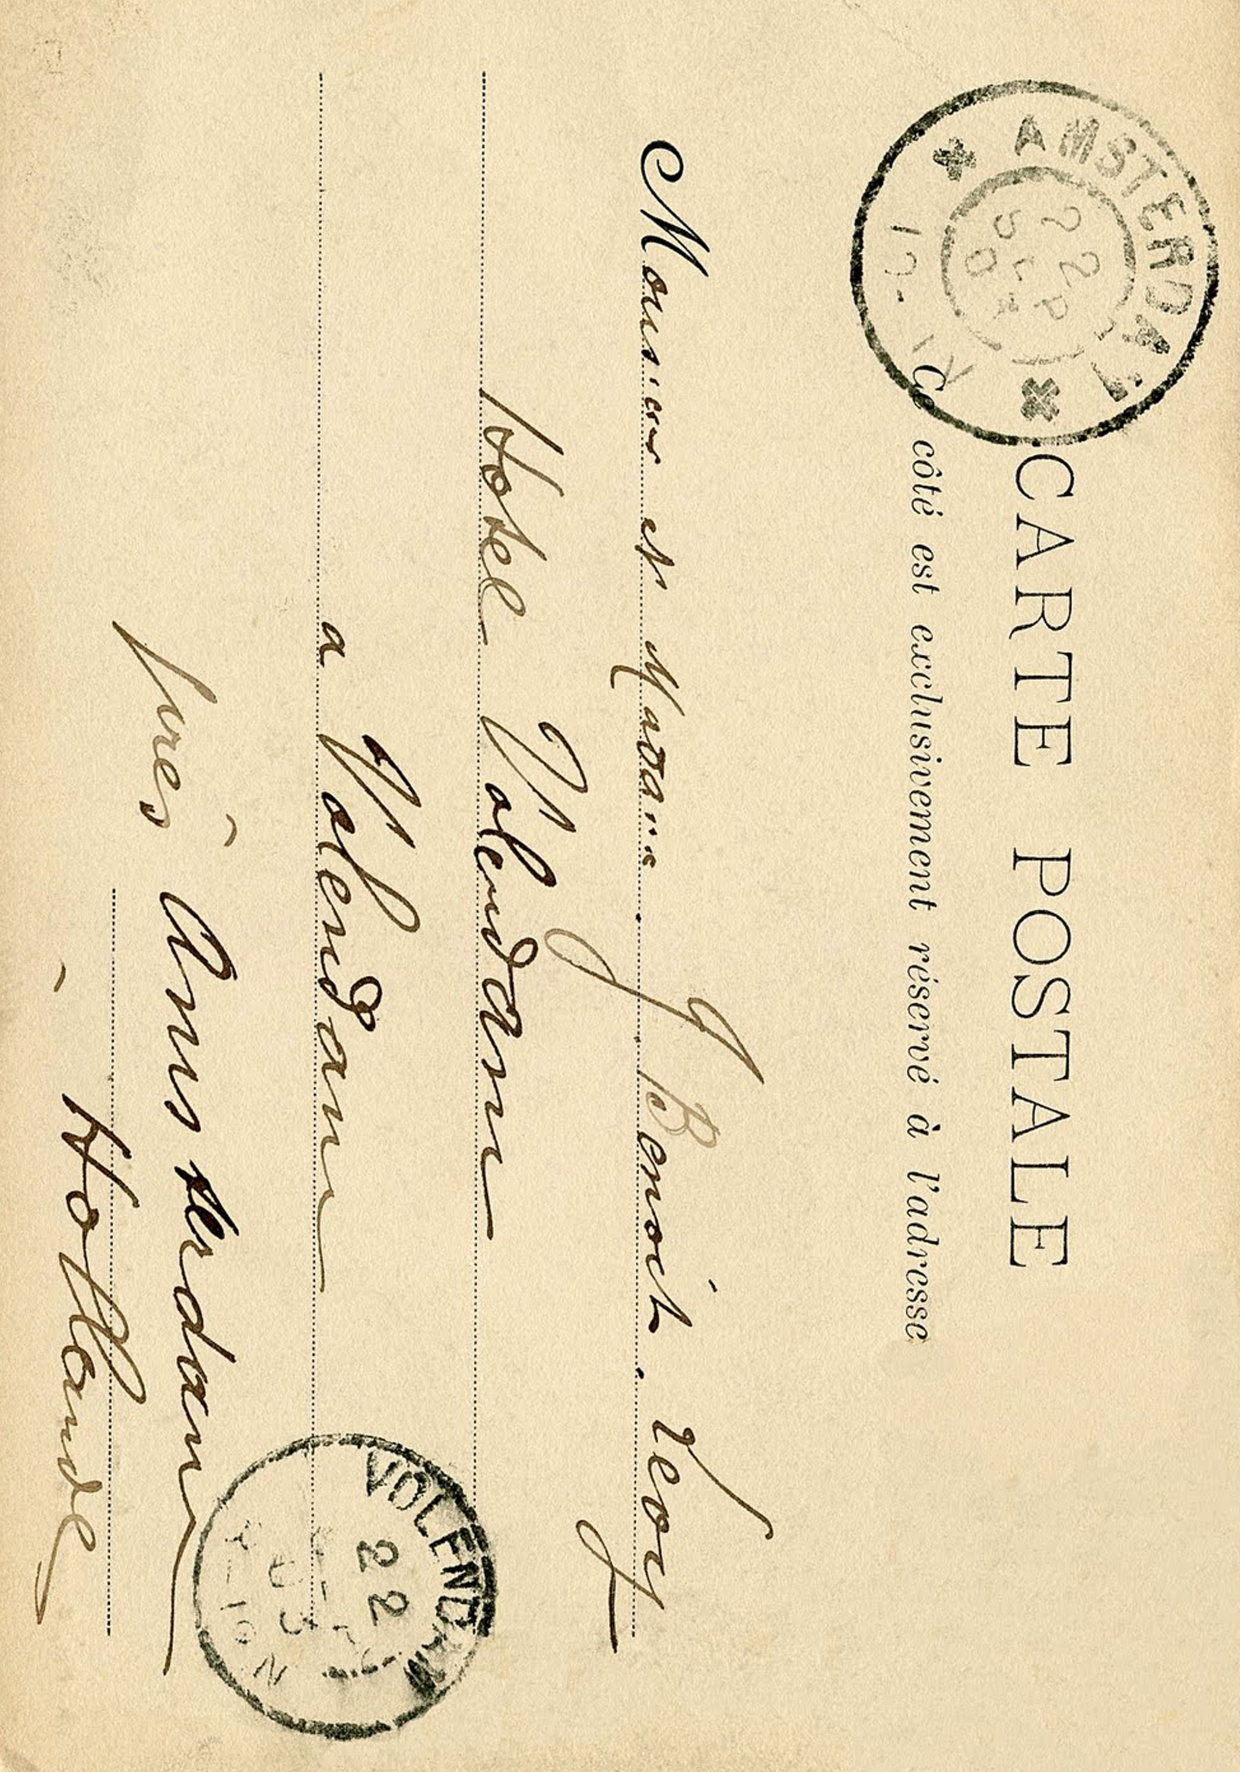 CARTE POSTALE
Ce côté est exclusivement réservé à l'adresse
Monsieur et Madame J Benoit. Levy
Hotel Volendam
a Volendam
près Amsterdam
Hollande
AMSTERDAM
22
SEP
03
VOLENDAM
22
03